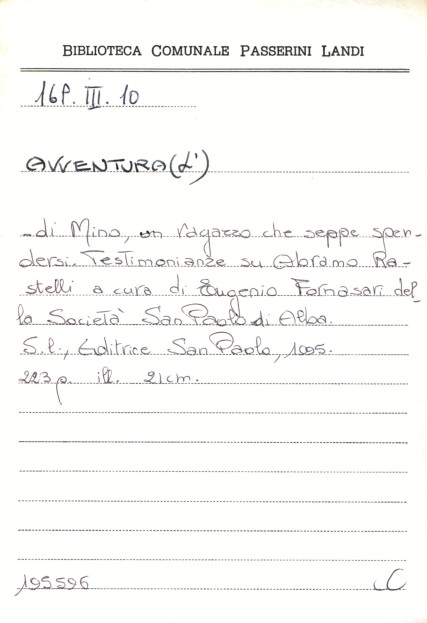 BIBLIOTECA COMUNALE PASSERINI LANDI
16P. III. 10
AVVENTURA (L')
- di Mino, un ragazzo che seppe spen-
dersi. Testimonianze su Abramo Ra-
stelli a cura di Eugenio Fornasari del-
la Società San Paolo di Alba.
S.l., Editrice San Paolo, 1995.
223 p. ill. 21cm.
195596 C